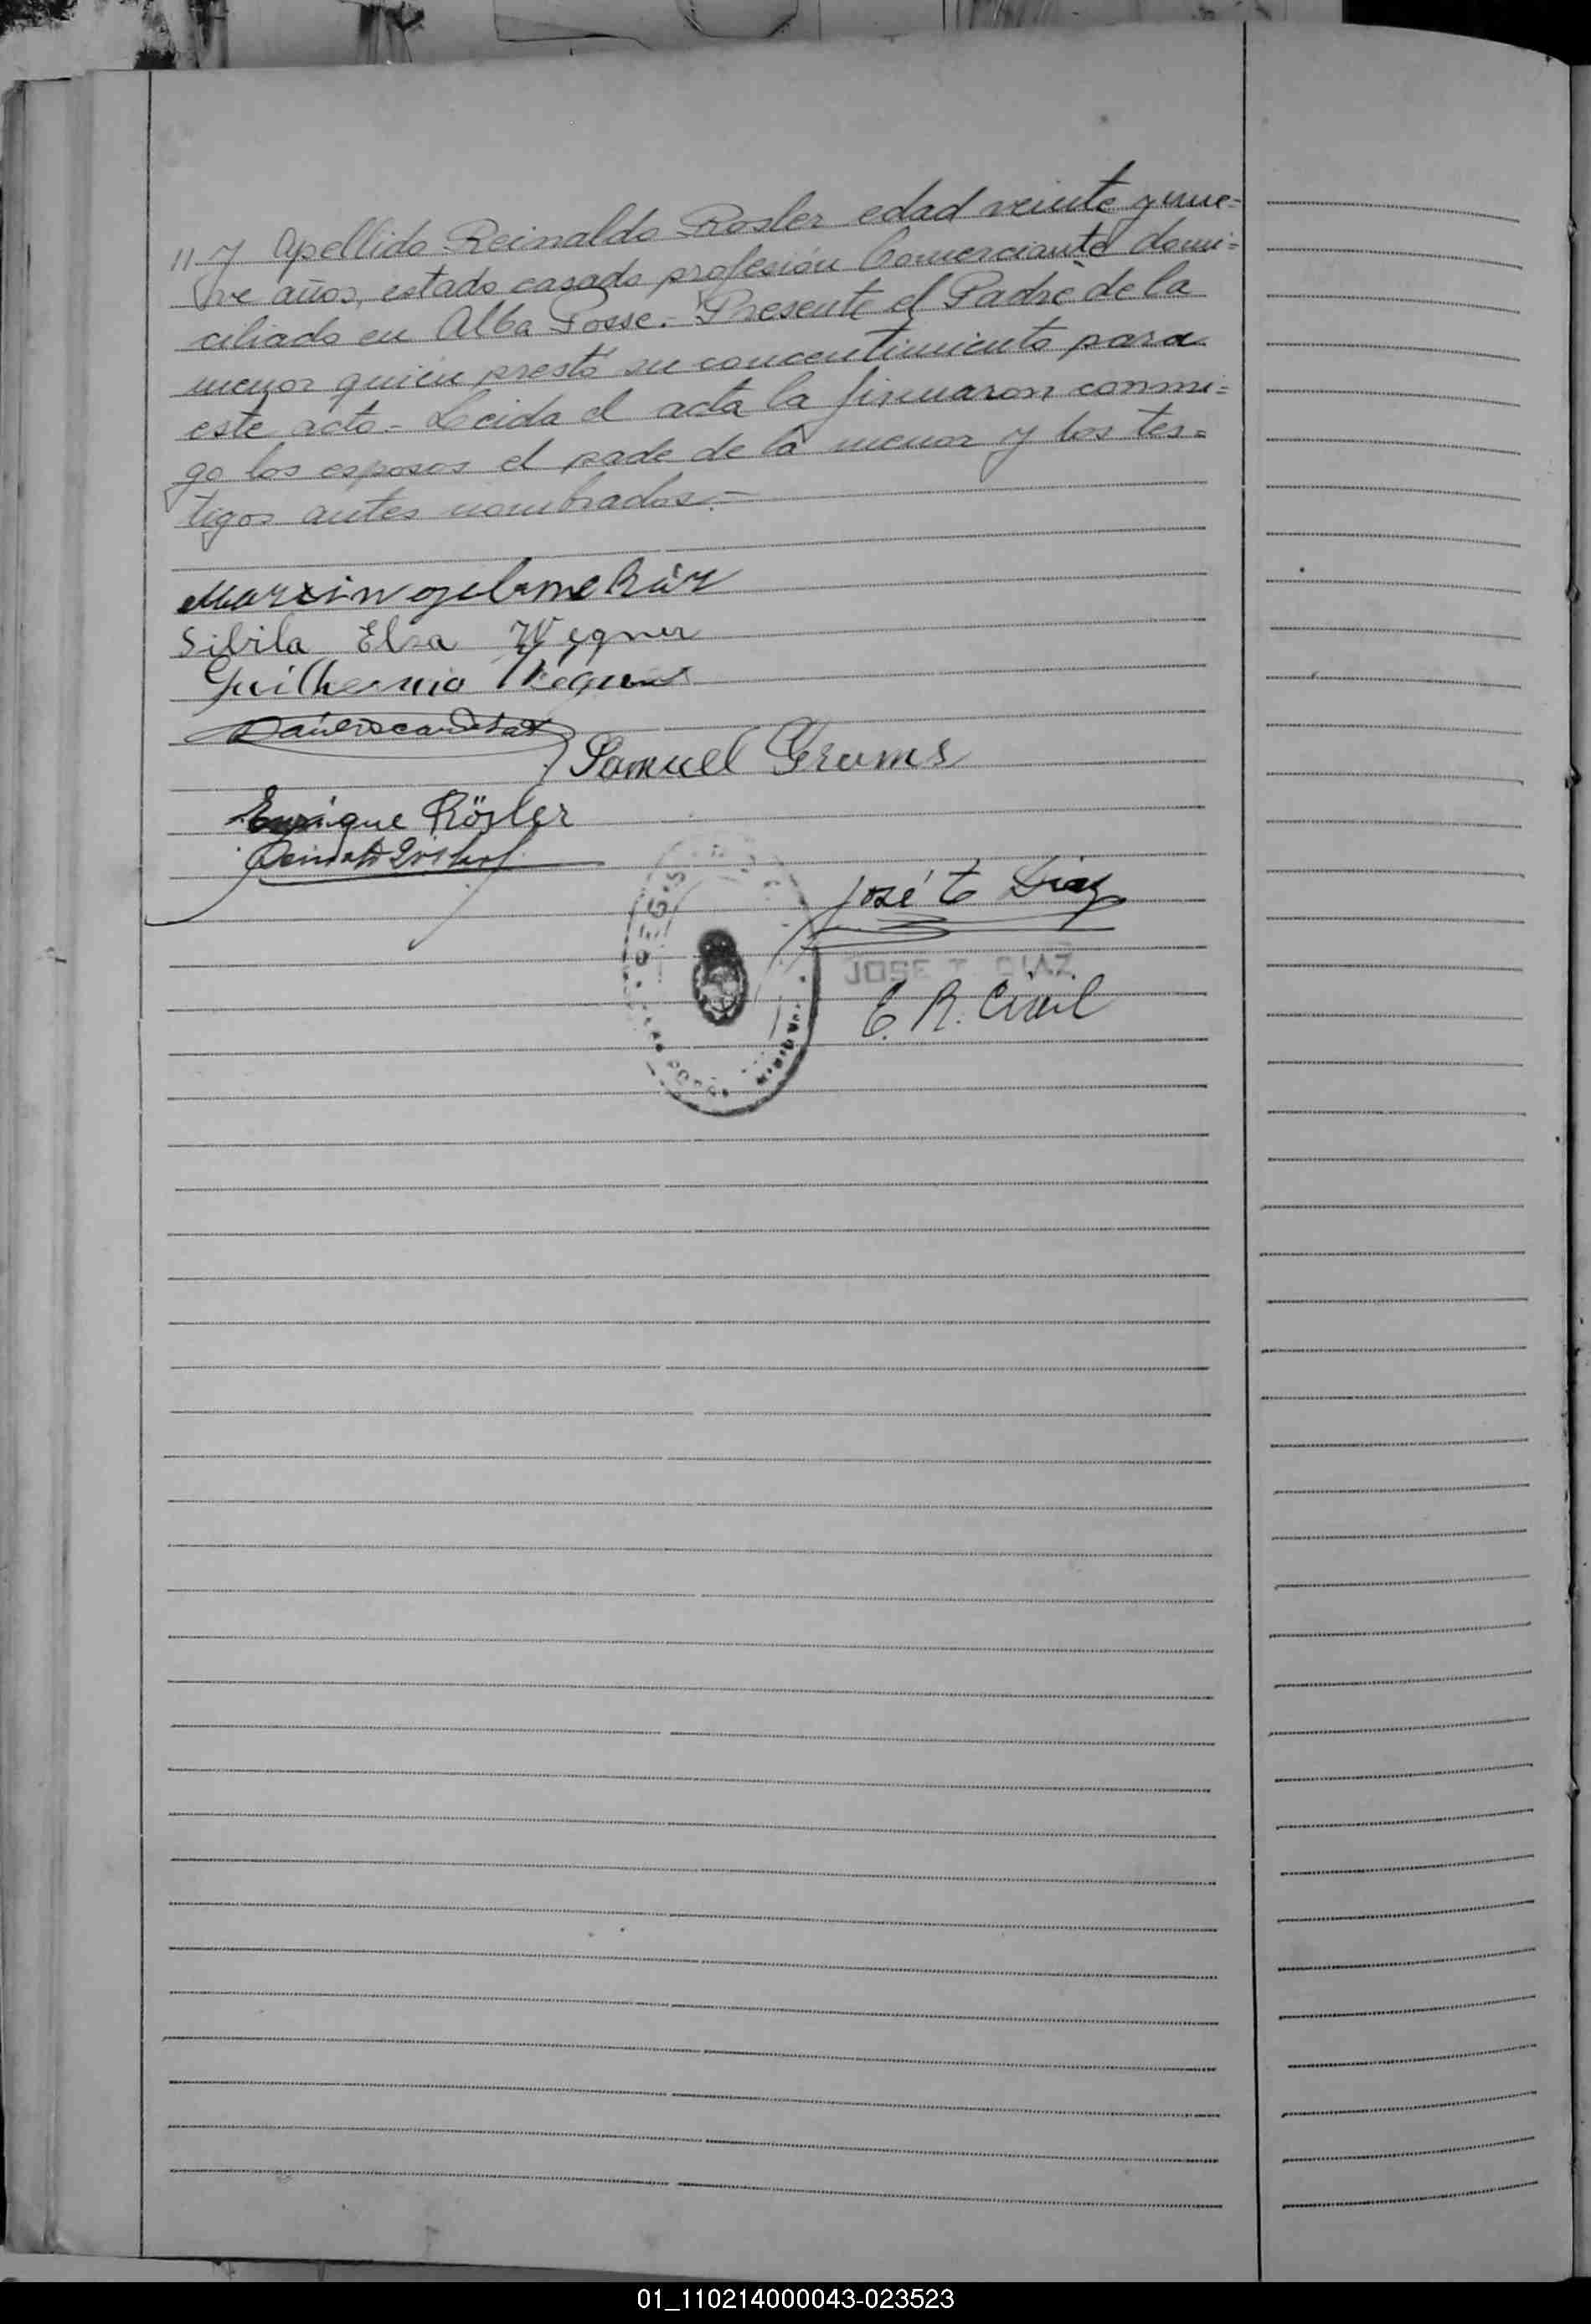 " y Apellido Reinaldo Rosler edad veinte y nue=
ve años, estado casado profesión Comerciante domi=
ciliado en Alba Posse.- Presente el Padre de la
menor quien prestó su concentimiento para
este acto.- Leida el acta la firmaron conmi=
go los esposos el pade de la menor y los tes=
tigos antes nombrados.-
Sibila Elsa Wegner
Guilhermo Wegner
Samuel Grams
Enrique Rösler
José T Diaz
JOSE T. DIAZ
E. R. Civil
01_110214000043-023523